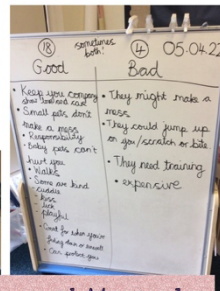 18 sometimes both! 4 05.04.22
Good Bad
• Keep you company
show love and care
• Small pets don't
make a mess
• Responsibility
• Baby pets can't
hurt you
• Walks
• Some are kind
cuddly
• kiss
• lick
• playful
• Good for when you're
feeling down or
• Can protect you
• They might make a
mess
• They could jump up
on you/scratch or bite
• They need training
• expensive